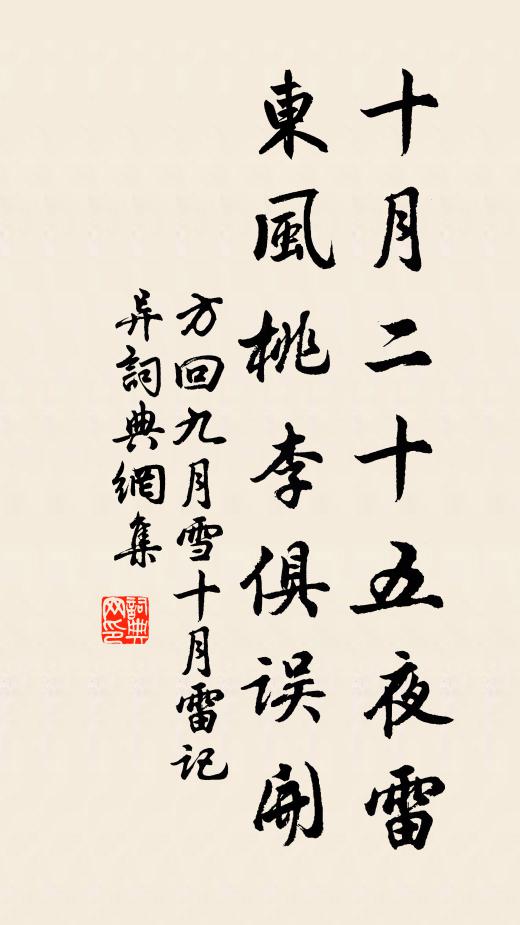 十月二十五夜雷
東風桃李俱误開
方回九月雪十月雷记
异詞典網集
詞典网印